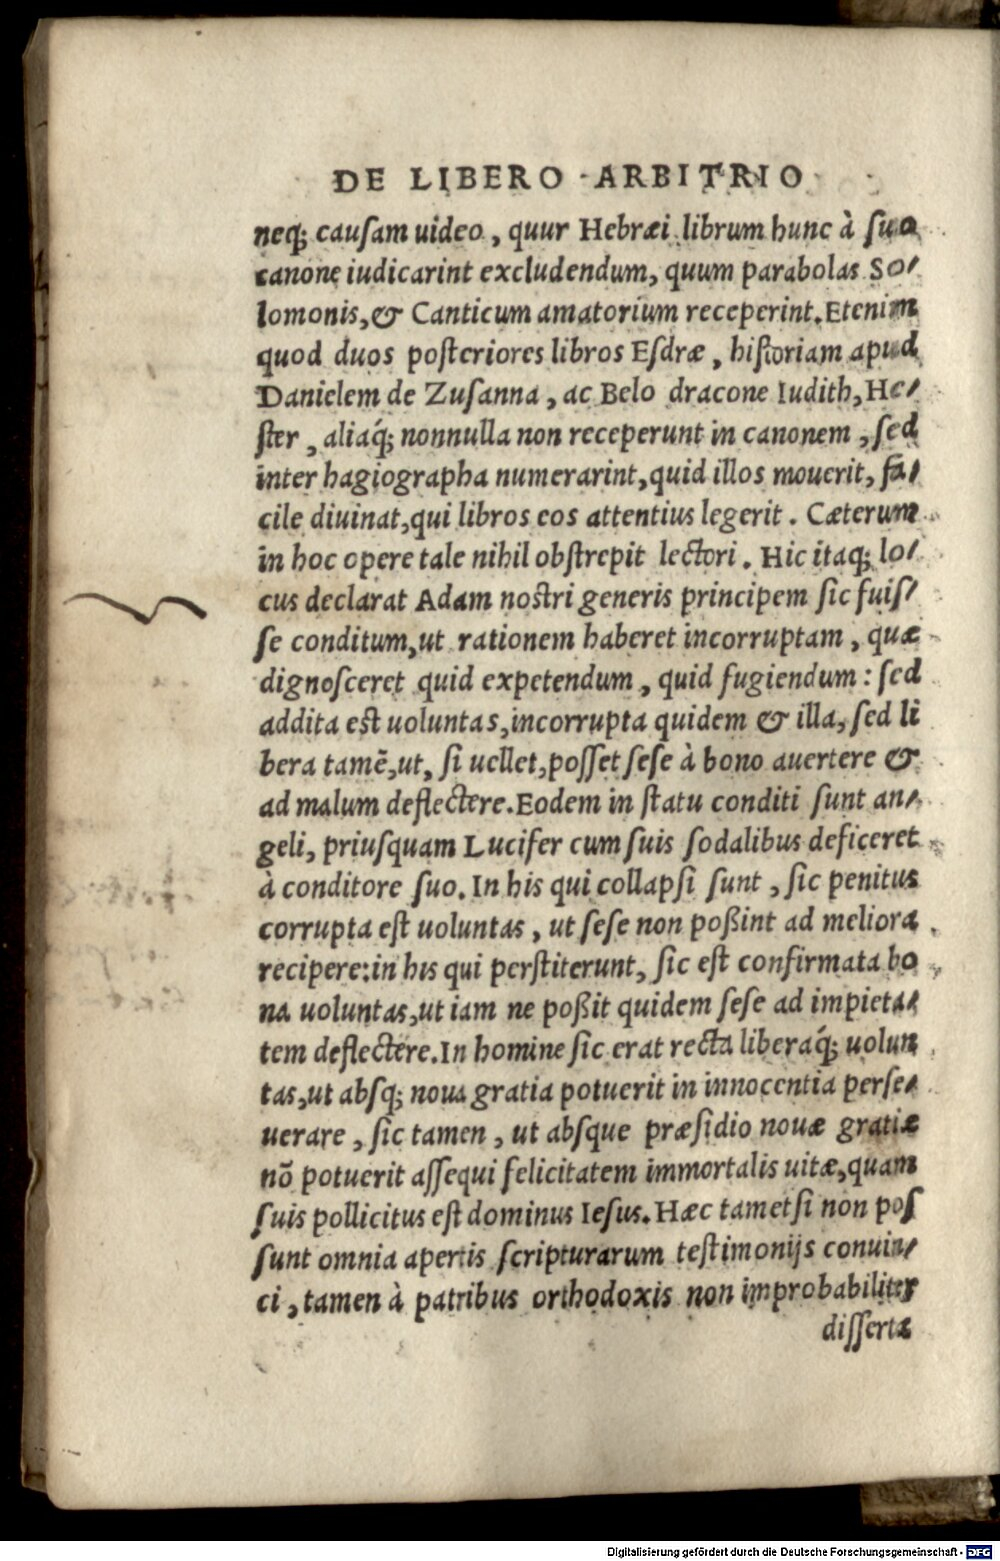 DE LIBERO ARBITRIO
neq; cauſam uideo, quur Hebræi librum hunc à ſuo
canone iudicarint excludendum, quum parabolas So/
lomonis, & Canticum amatorium receperint. Etenim
quod duos poſteriores libros Eſdræ, hiſtoriam apud
Danielem de Zuſanna, ac Belo dracone Iudith, He/
ſter, aliaq́; nonnulla non receperunt in canonem, ſed
inter hagiographa numerarint, quid illos mouerit, fa/
cile diuinat, qui libros eos attentius legerit. Cæterum
in hoc opere tale nihil obſtrepit lectori. Hic itaq; lo/
cus declarat Adam noſtri generis principem ſic fuiſ/
ſe conditum, ut rationem haberet incorruptam, quæ
dignoſceret quid expetendum, quid fugiendum: ſed
addita eſt uoluntas, incorrupta quidem & illa, ſed li
bera tamē, ut, ſi uellet, poſſet ſeſe à bono auertere &
ad malum deflectere. Eodem in ſtatu conditi ſunt an/
geli, priuſquam Lucifer cum ſuis ſodalibus deficeret
à conditore ſuo. In his qui collapſi ſunt, ſic penitus
corrupta eſt uoluntas, ut ſeſe non poßint ad meliora
recipere: in his qui perſtiterunt, ſic eſt confirmata bo
na uoluntas, ut iam ne poßit quidem ſeſe ad impieta/
tem deflectere. In homine ſic erat recta liberaq́; uolun
tas, ut abſq; noua gratia potuerit in innocentia perſe/
uerare, ſic tamen, ut abſque præſidio nouæ gratiæ
nō potuerit aſſequi felicitatem immortalis uitæ, quam
ſuis pollicitus eſt dominus Ieſus. Hæc tametſi non poſ
ſunt omnia apertis ſcripturarum teſtimonijs conuin/
ci, tamen à patribus orthodoxis non improbabiliter
diſſerta
Digitalisierung gefördert durch die Deutsche Forschungsgemeinschaft - DFG